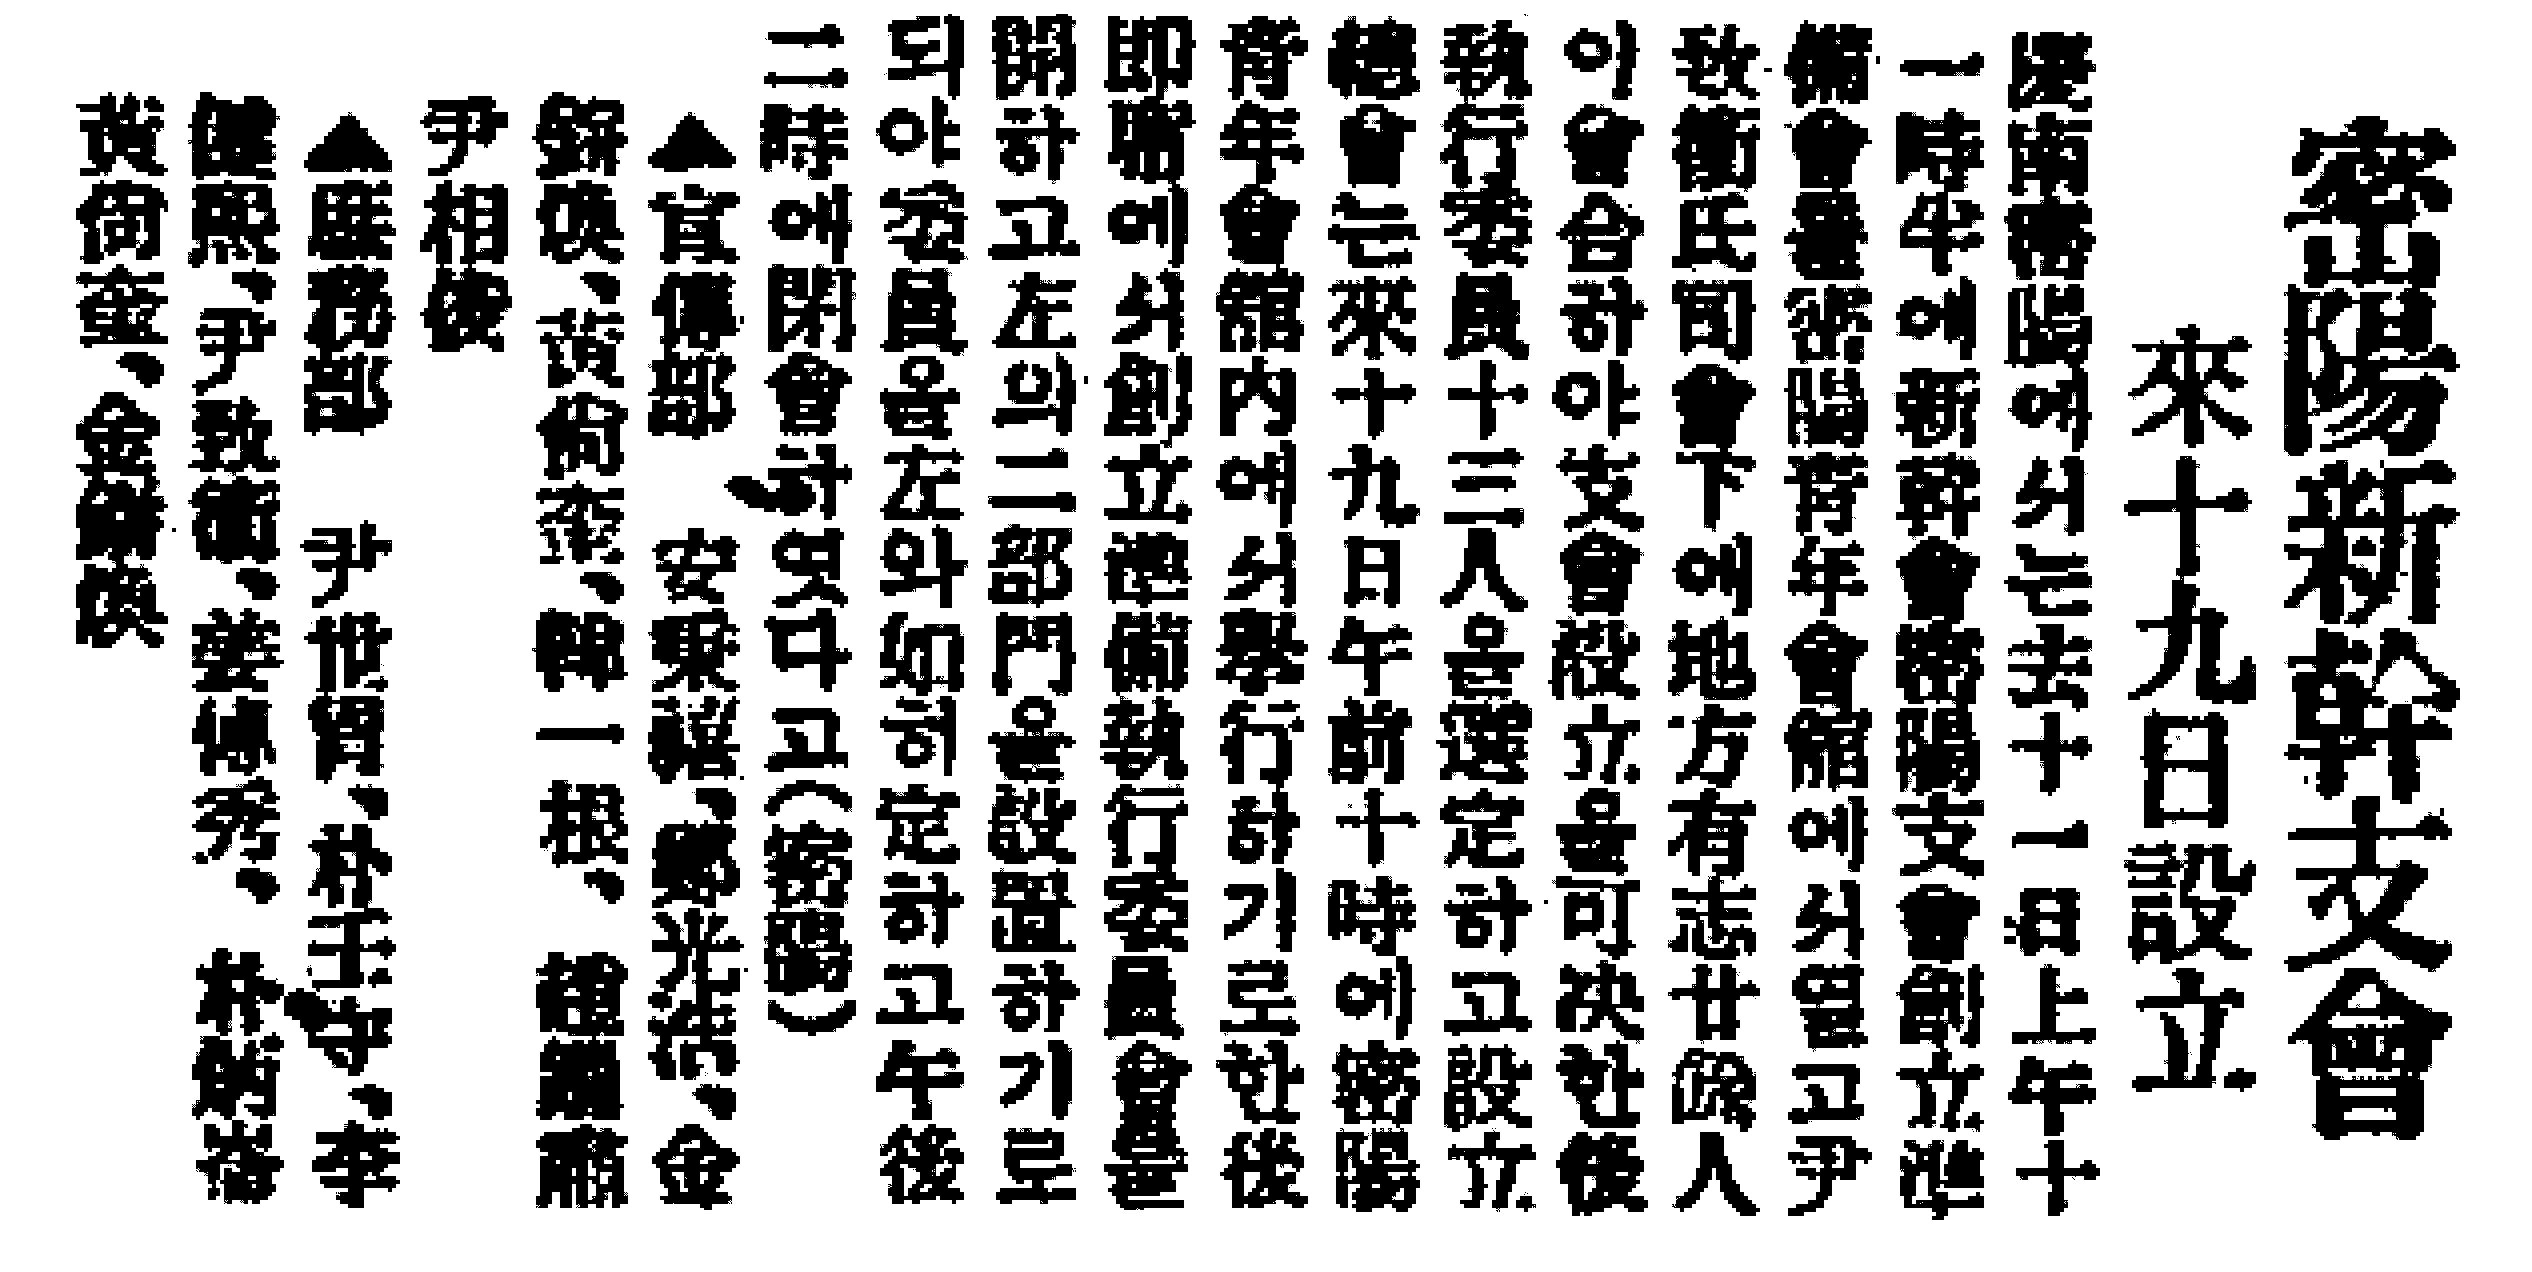 密陽新幹支會
來十九日設立
慶南密陽에서는去十一日上午十
一時半에新幹會密陽支會創立準
備會를密陽靑年會館에서열고尹
致衡氏司會下에地方有志廿餘人
이會合하야支會設立을可決한後
執行委員十三人을選定하고設立
總會는來十九日午前十時에密陽
靑年會館內에서擧行하기로한後
即席에서創立準備執行委員會를
開하고左의二部門을設置하기로
되야委員을左와如히定하고午後
二時에閉會하엿다고(密陽)
▲宣傳部 安秉禧、鄭光浩、金
煥、黃尙奎、韓一根、
尹相俊
▲庶務部 尹世胄、朴壬守、李
健熙、尹致衡、姜 秀、朴
黃尙奎、金 煥